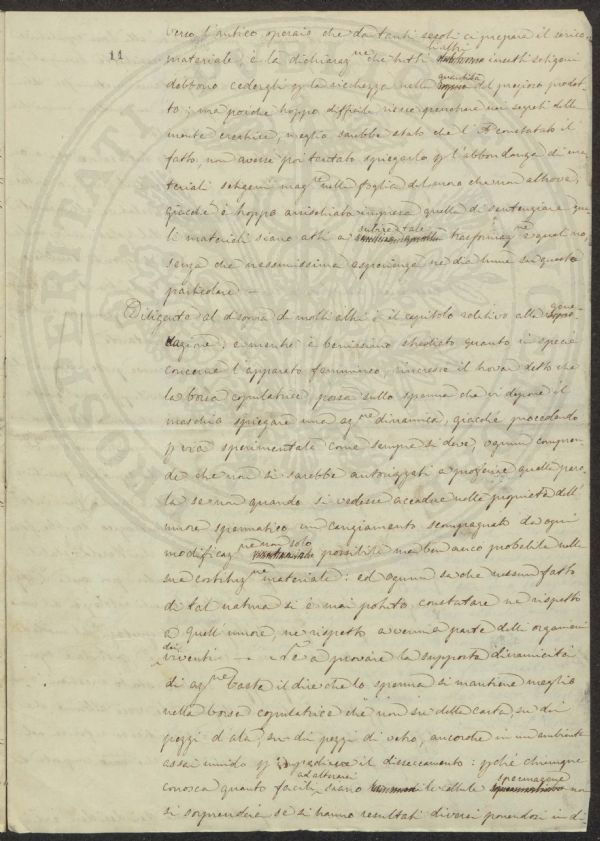 verso l'antico operaio che da tanti secoli ci prepara il serico
11
materiale, è la dichiaraz.ne che tutti gli altri insetti setigeni
debbono cedergli p la ricchezza nella quantità del prezioso prodot-
to; ma poiche troppo difficile riesce penetrare nei segreti della
mente creatrice, meglio sarebbe stato che l'A constatato il
fatto, non avesse poi tentato spiegarlo p l'abbondanza di ma-
teriali setigeni mag.re nella foglia del moro che non altrove,
giacchè è troppo arrischiata impresa quella di sentenziare qua-
li materiali siano atti a subire tale trasformaz.ne e quali no,
senza che nessunissima esperienza ne dia lume su questo
particolare. —
Diligente al disopra di molti altri è il capitolo relativo alla gene-
razione, e mentre è benissimo studiato quanto in specie
concerne l'apparato femmineo, incresce il trovar detto che
la borsa copulatrice, possa sullo sperma che vi depone il
maschio spiegare una az.ne dinamica, giacchè procedendo
p via sperimentale come sempre si deve, ognun compren-
de che non si sarebbe autorizzati a proferire quella paro-
la se non quando si vedesse accadere nelle proprietà dell'
umore spermatico un cangiamento scompagnato da ogni
modificaz.ne non solo possibile ma ben anco probabile nella
sua costituz.ne materiale: ed ognun sa che nessun fatto
di tal natura si è mai potuto constatare ne rispetto
a quell'umore, ne rispetto a veruna parte delli organismi
viventi. — Ne a provare la supposta dinamicità
di az.ne basta il dire che lo sperma si mantiene meglio
nella borsa copulatrice che non su della carta, su di
pezzi d'ala, su di pezzi di vetro, ancorche in un ambiente
assai umido p impedirne il disseccamento: pchè chiunque
conosca quanto facili siano ad alterarsi le cellule spermagene non
si sorprenderà se si hanno resultati diversi ponendosi in di